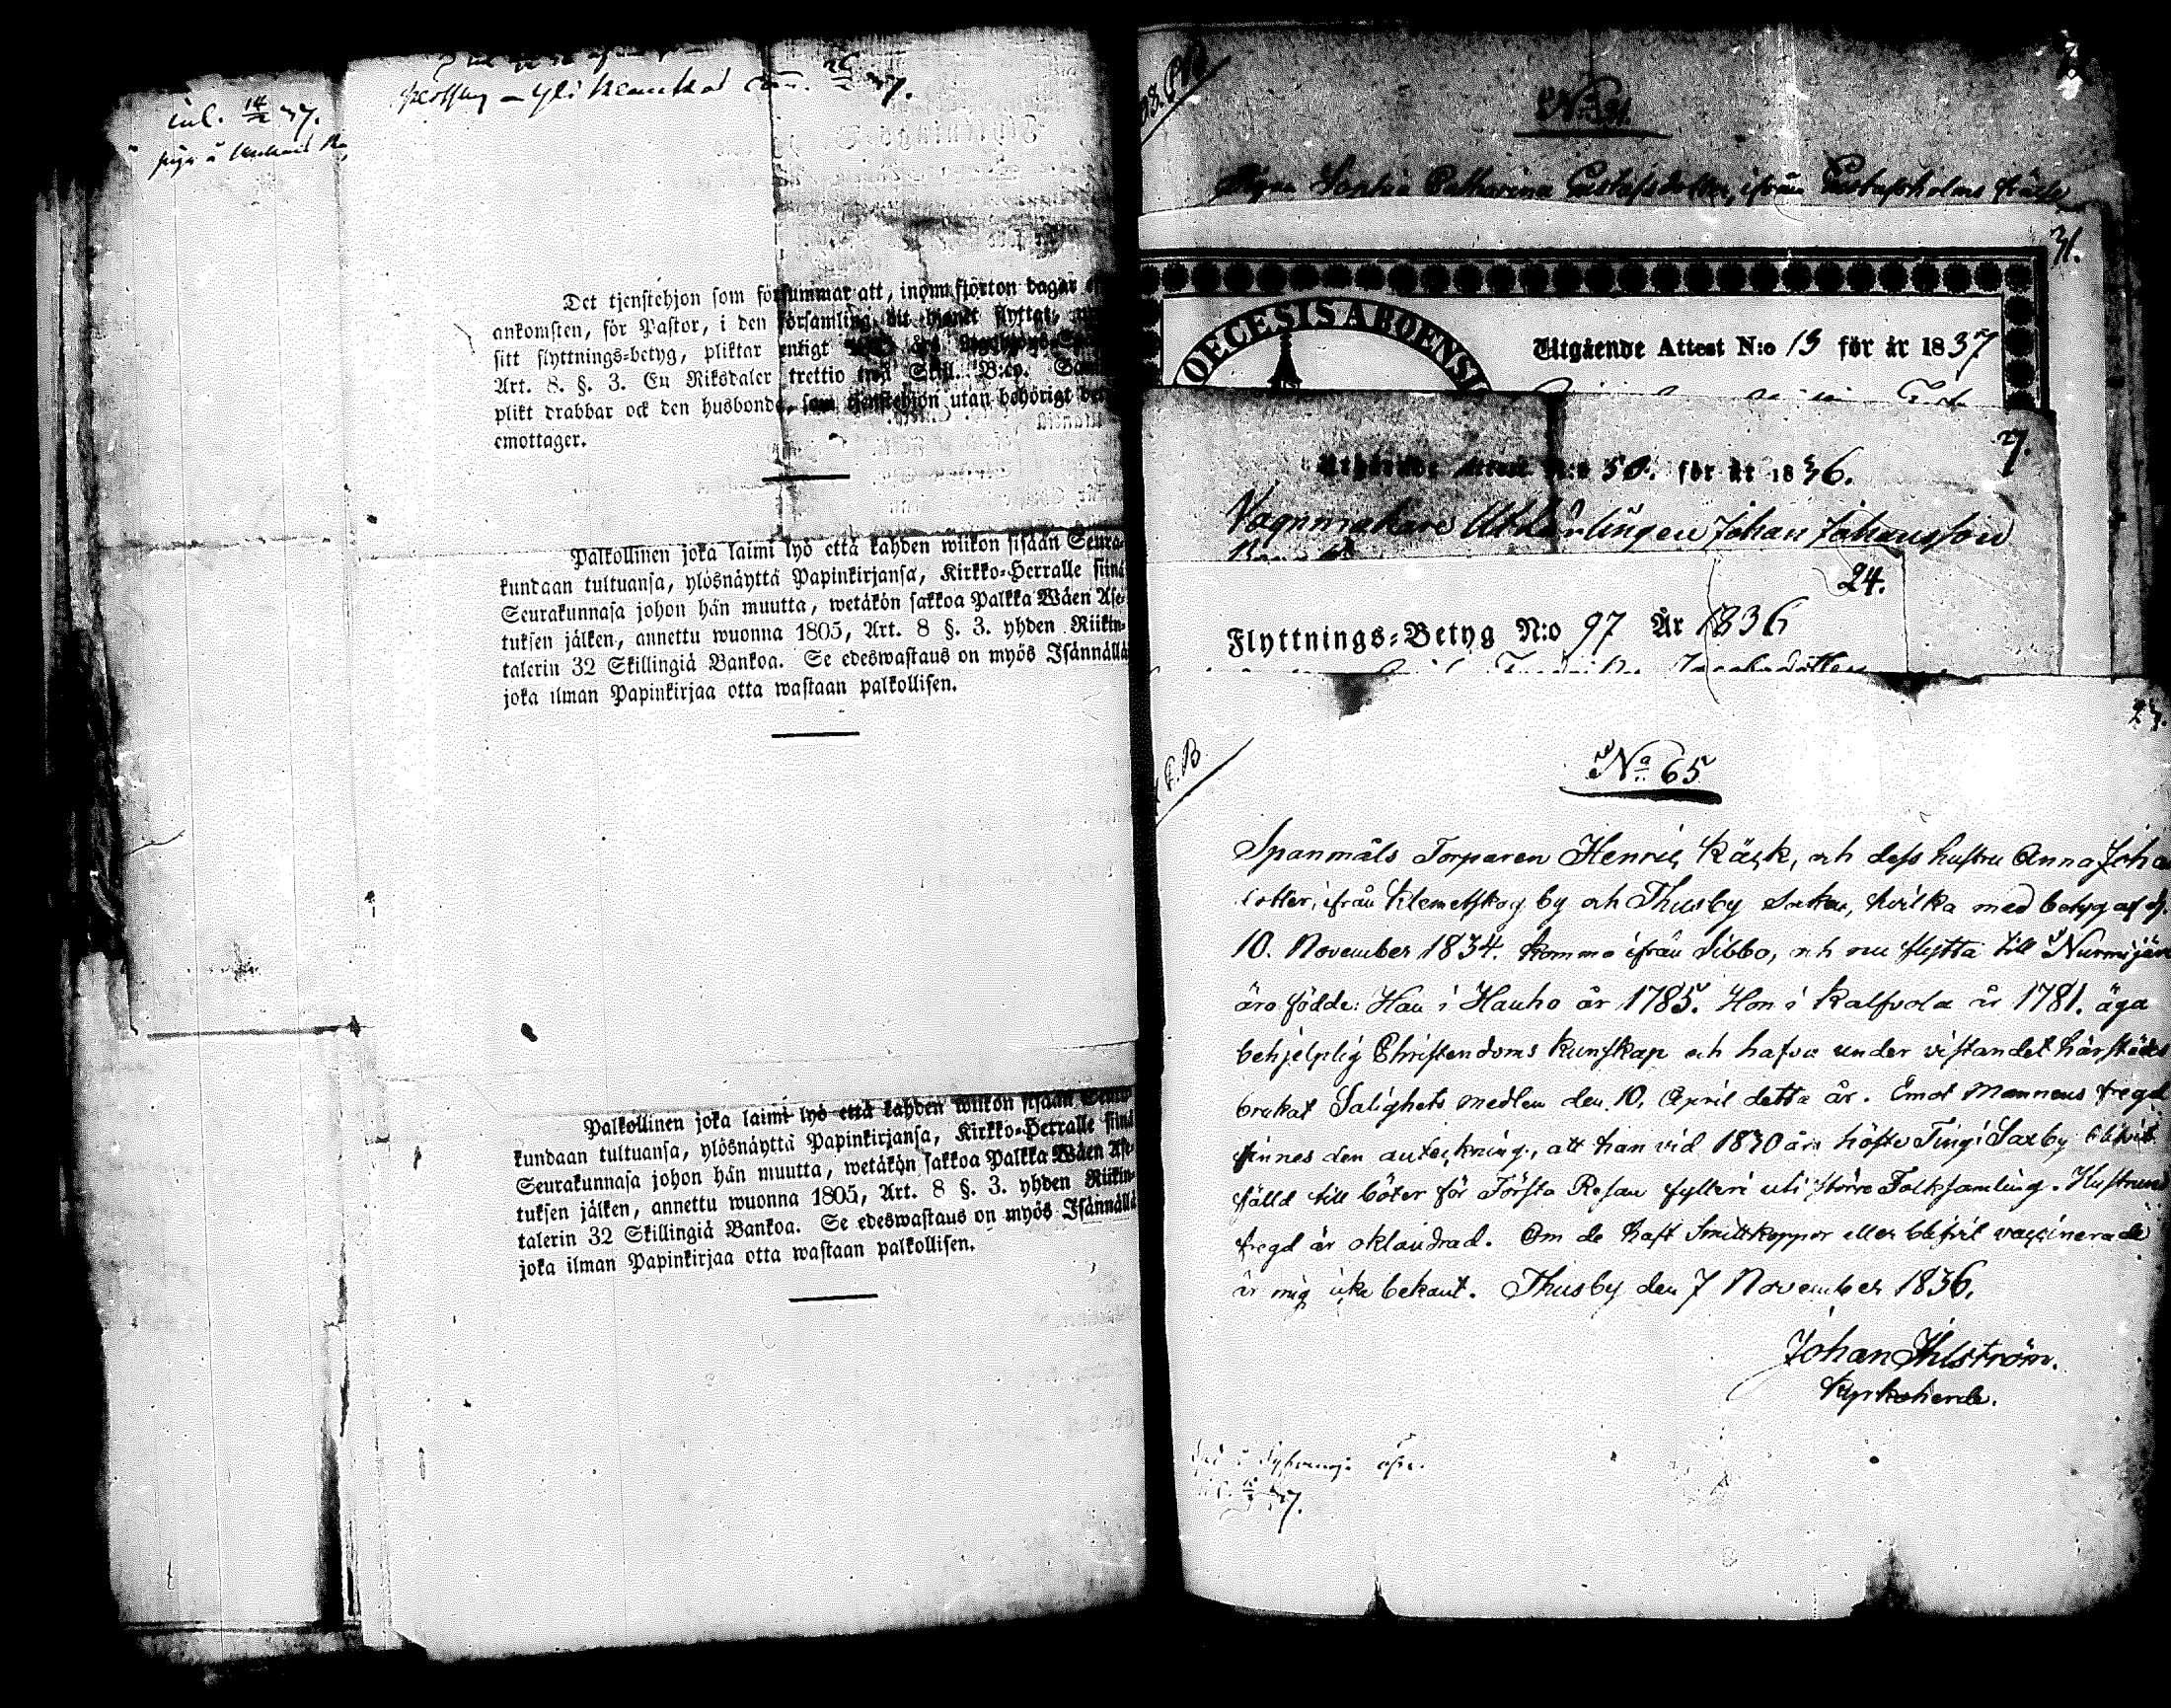 inl. 14/2 37.
piga å
37.
Det tjenstehjon som försummar att, inom fjorton dagar
ankomsten, för Pastor, i den församling, dit hjonet flyttat,
sitt flyttnings-betyg, pliktar enligt
Art. 8. §. 3. En Riksdaler trettio två Skill. B:co.
plikt drabbar ock den husbonde, som tjenstehjon utan behörigt
emottager.
Palkollinen joka laimi lyö että kahden wiikon sisään Seura-
kundaan tultuansa, ylösnäyttä Papinkirjansa, Kirkko-Herralle siinä
Seurakunnasa johon hän muutta, wetäkön sakkoa Palkka Wäen Ase-
tuksen jälken, annettu wuonna 1805, Art. 8 §. 3. yhden Riikin-
talerin 32 Skillingiä Bankoa. Se edeswastaus on myös Isännällä
joka ilman Papinkirjaa otta wastaan palkollisen.
Palkollinen joka laimi lyö että kahden wiikon sisään Seura-
kundaan tultuansa, ylösnäyttä Papinkirjansa, Kirkko-Herralle siinä
Seurakunnasa johon hän muutta, wetäkön sakkoa Palkka Wäen Ase-
tuksen jälken, annettu wuonna 1805, Art. 8 §. 3. yhden Riikin-
talerin 32 Skillingiä Bankoa. Se edeswastaus on myös Isännällä
joka ilman Papinkirjaa otta wastaan palkollisen.
Pigan Sophia Catharina Gustafsdotter, ifrån Gustafsholms
31.
OECESIS ABOENSI
Utgående Attest N:o 13 för år 1837
7.
Utgående Attest N:o 50. för år 1836.
Vagnmakare Utlärlingen Johan Johansson
24.
Flyttnings-Betyg N:o 97 År 1836
Jacobsdotter
No 65
Spanmåls Torparen Henric Käck, och dess hustru Anna Joha
dotter, ifrån Klemetskog by och Thusby Socken, hvilka med betyg af d.
10. November 1834. kommo ifrån Sibbo, och nu flytta till Nurmijär
äro födde: Han i Hauho år 1785. Hon i Kalfvola år 1781. äga
behjelplig Christendoms kunskap och hafva under vistandet härstädes
brukat Salighets medlen den 10. April detta år. Emot Mannens fregd
finnes den anteckning, att han vid 1830 års höste Ting i Saxby blifvit
fälld till böter för Första Resan fylleri uti större Folksamling. Hustruns
fregd är oklandrad. Om de haft Smittkoppor eller blifvit vaccinerade
är mig icke bekant. Thusby den 7 November 1836.
Johan Ihlström.
Kyrkoherde.
37.